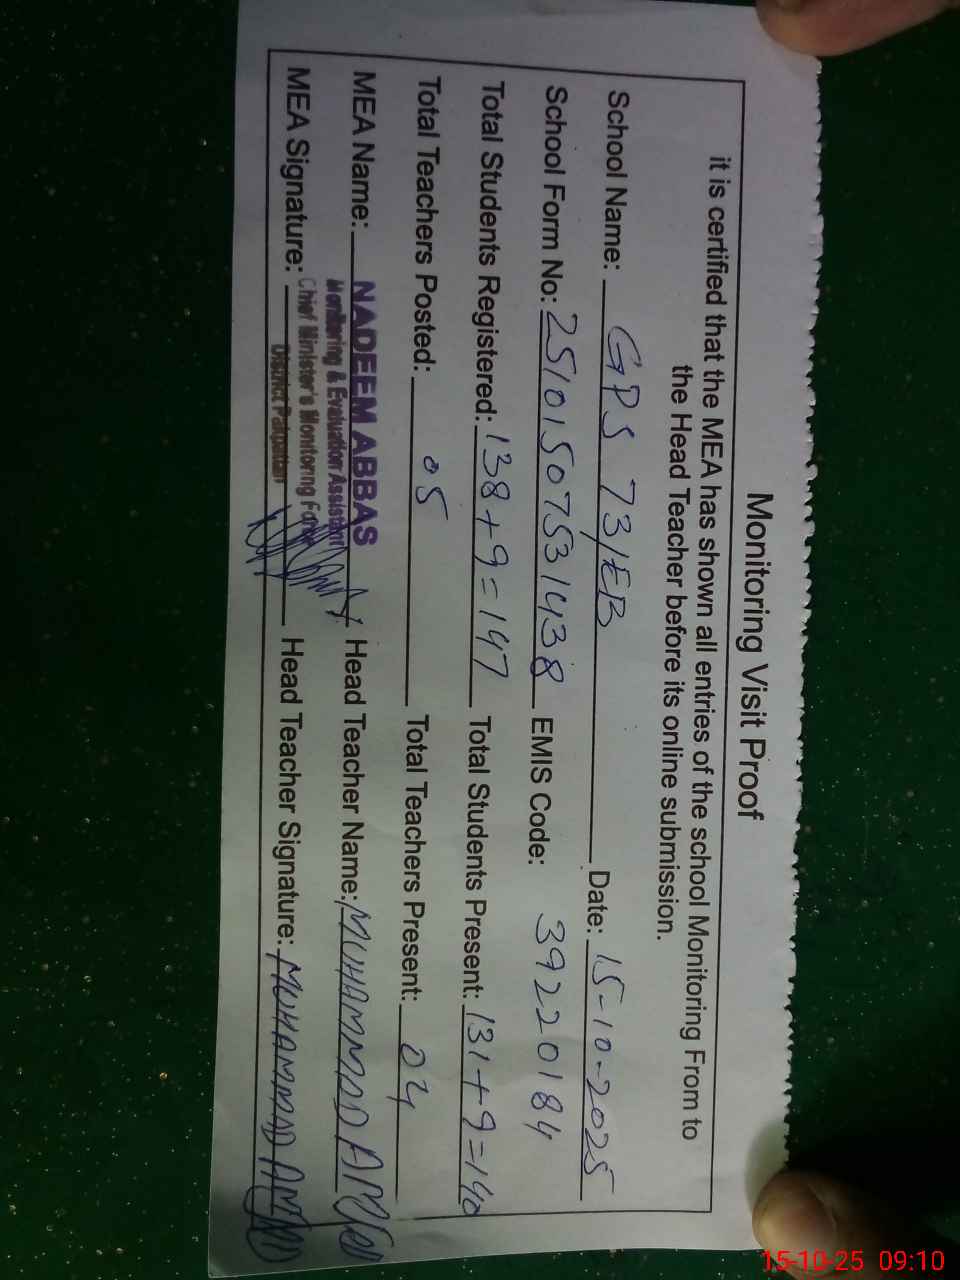 Monitoring Visit Proof
it is certified that the MEA has shown all entries of the school Monitoring From to
the Head Teacher before its online submission.
School Name: GPS 73/EB Date: 15-10-2025
School Form No: 25101507531438 EMIS Code: 39220184
Total Students Registered: 138+9=147 Total Students Present: 131+9=140
Total Teachers Posted: 05 Total Teachers Present: 04
MEA Name: NADEEM ABBAS Head Teacher Name: MUHAMMAD
Monitoring & Evaluation Assistant
Chief Minister's Monitoring Force
MEA Signature: Head Teacher Signature: MUHAMMAD
District Pakpattan
15-10-25 09:10